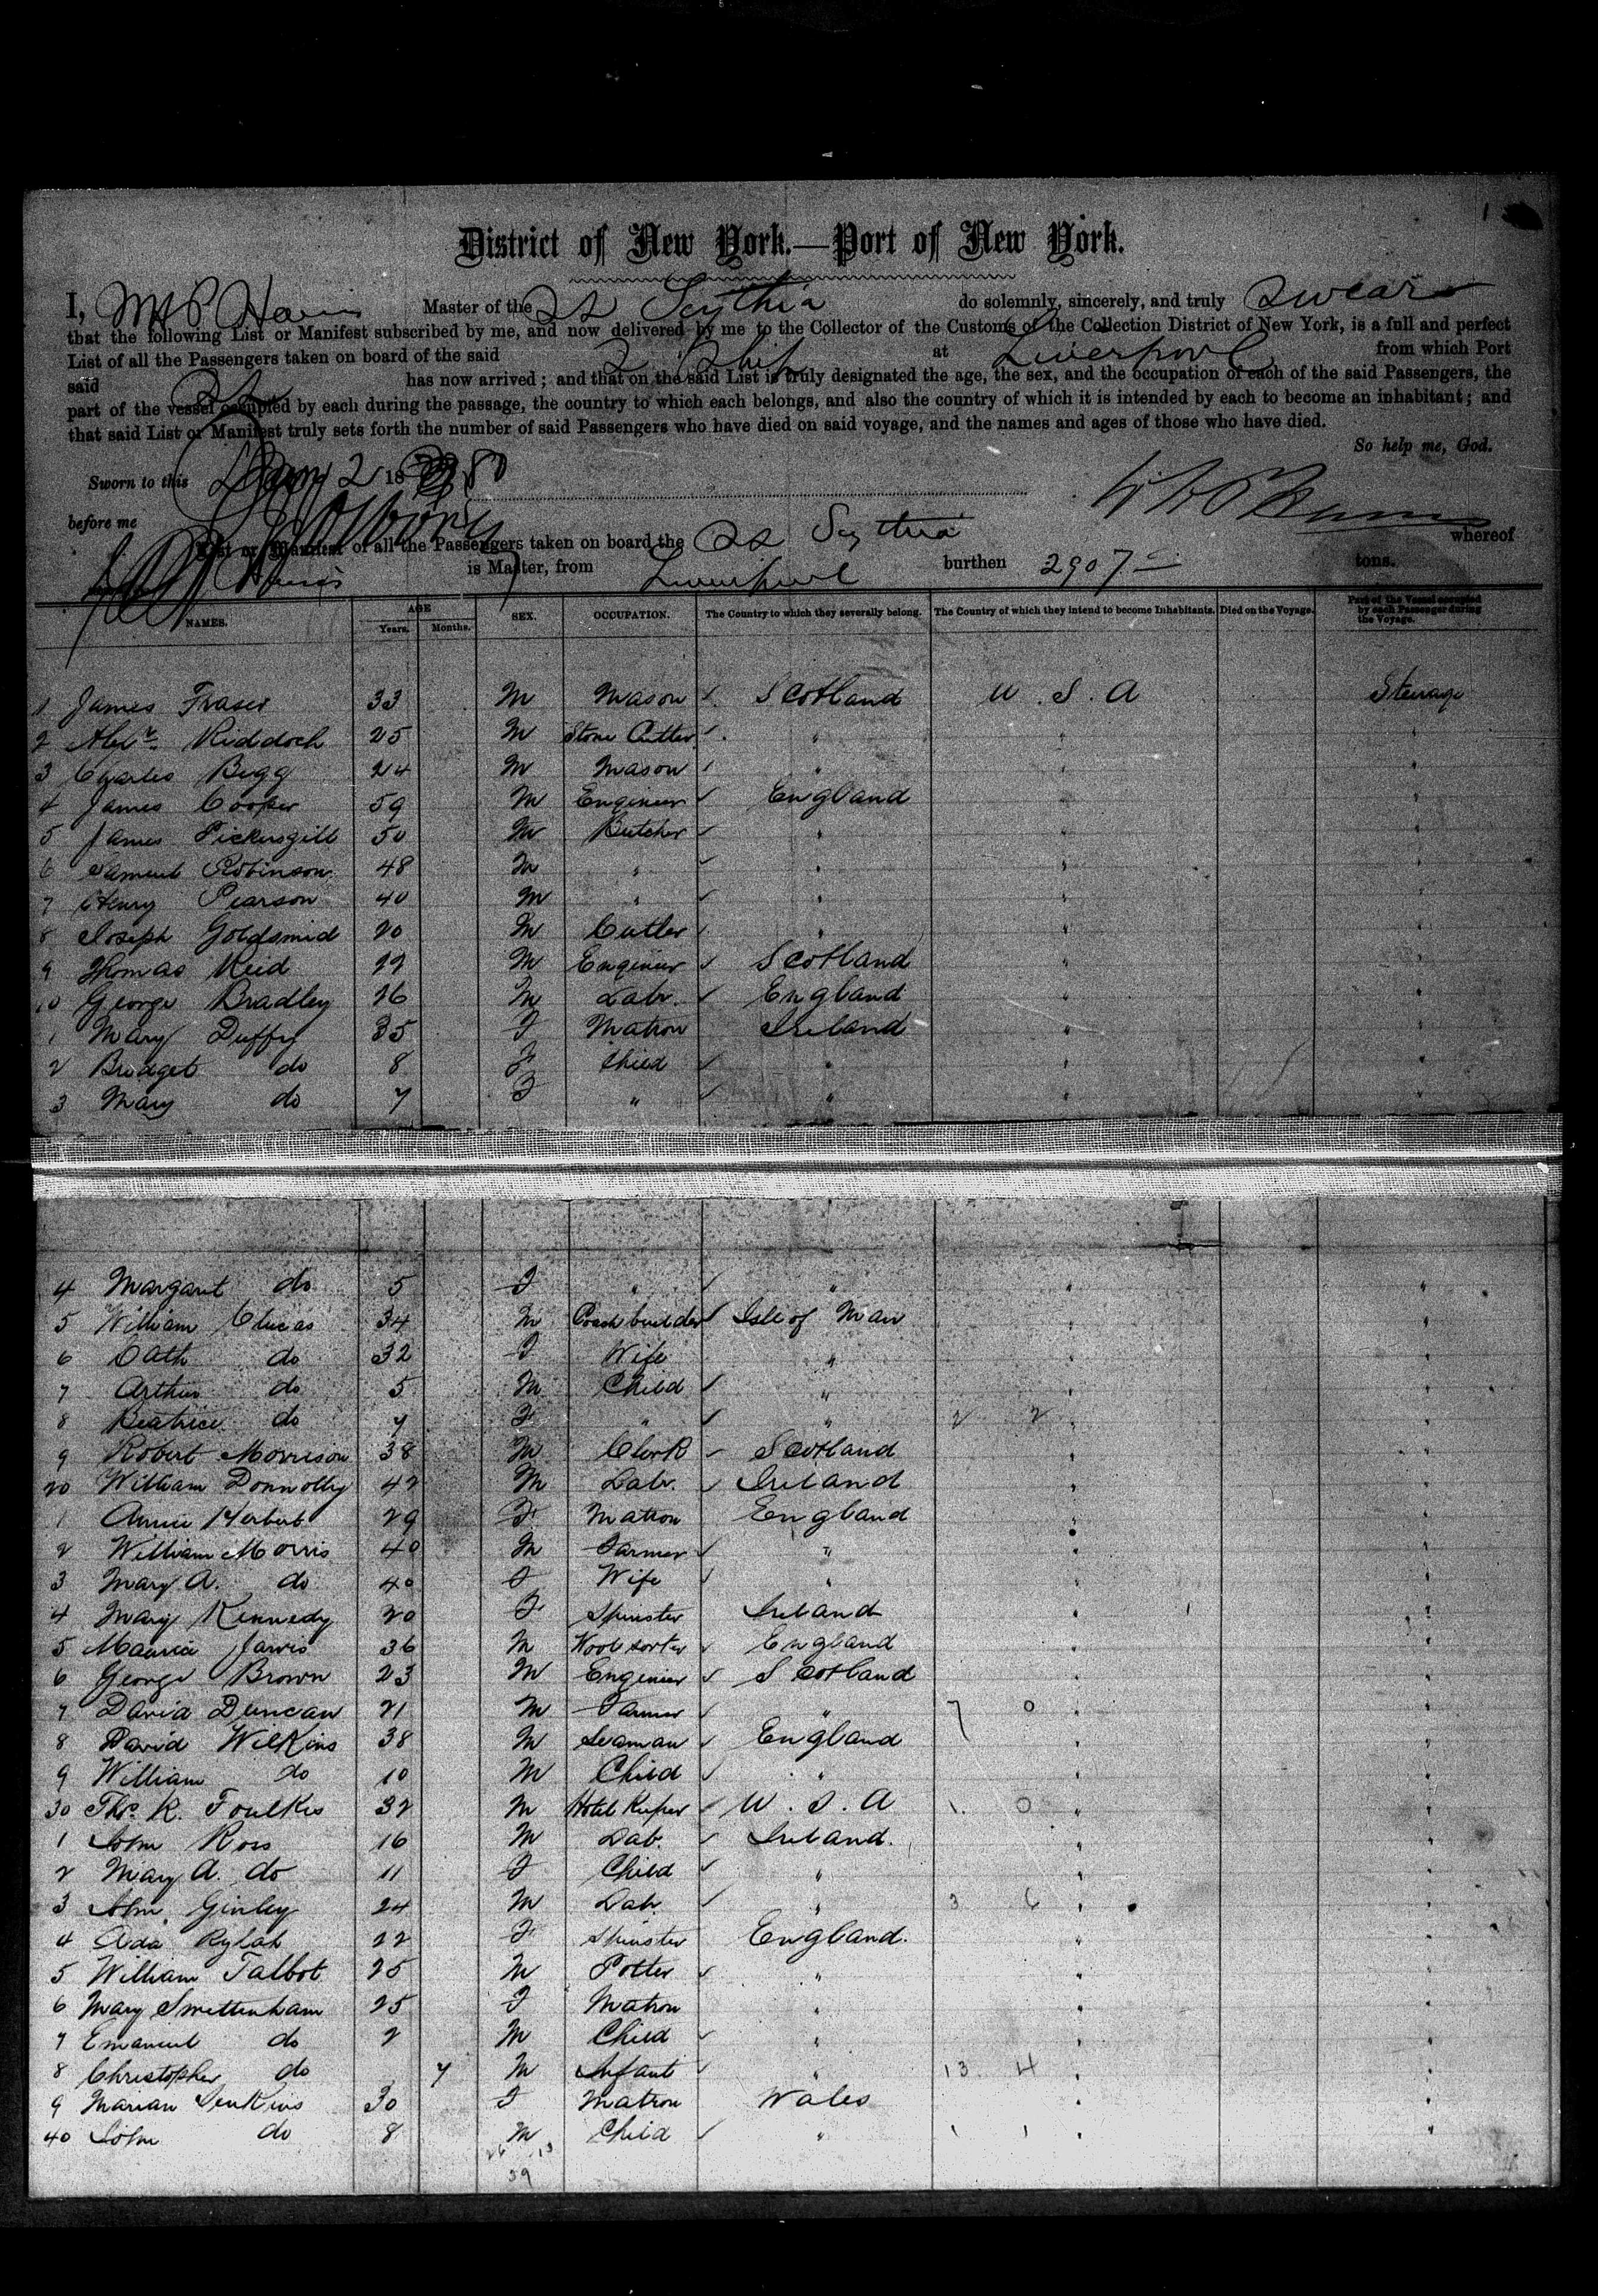 District of New York.—Port of New York.
I, Master of the SS Scythia do solemnly, sincerely, and truly swear
that the following List or Manifest subscribed by me, and now delivered by me to the Collector of the Customs of the Collection District of New York, is a full and perfect
List of all the Passengers taken on board of the said S. Ship at Liverpool from which Port
said has now arrived; and that on the said List is truly designated the age, the sex, and the occupation of each of the said Passengers, the
part of the vessel occupied by each during the passage, the country to which each belongs, and also the country of which it is intended by each to become an inhabitant; and
that said List or Manifest truly sets forth the number of said Passengers who have died on said voyage, and the names and ages of those who have died.
So help me, God.
Sworn to this 2 18 80
before me
List or Manifest of all the Passengers taken on board the SS Scythia whereof
is Master, from Liverpool burthen 2907 tons.
NAMES. AGE Years. Months. SEX. OCCUPATION. The Country to which they severally belong. The Country of which they intend to become Inhabitants. Died on the Voyage. Part of the Vessel occupied by each Passenger during the Voyage.
1 James Fraser 33 M Mason Scotland U.S.A Steerage
2 Alexr. Riddoch 25 M Stone Cutter " " "
3 Charles Begg 24 M Mason " " "
4 James Cooper 59 M Engineer England " "
5 James Pickersgill 50 M Butcher " " "
6 Samuel Robinson 48 M " " " "
7 Henry Pearson 40 M " " " "
8 Joseph Goldsmid 20 M Cutler " " "
9 Thomas Reid 22 M Engineer Scotland " "
10 George Bradley 26 M Labr. England " "
1 Mary Duffy 35 F Matron Ireland " "
2 Bridget do 8 F Child " " "
3 Mary do 7 F " " " "
4 Margaret do 5 F " " " "
5 William Clucas 34 M Coachbuilder Isle of Man " "
6 Cath do 32 F Wife " " "
7 Arthur do 5 M Child " " "
8 Beatrice do 4 F " " 2 2 " "
9 Robert Morrison 38 M Clerk Scotland " "
20 William Donnolly 42 M Labr. Ireland " "
1 Annie Herbert 29 F Matron England " "
2 William Morris 40 M Farmer " " "
3 Mary A. do 40 F Wife " " "
4 Mary Kennedy 20 F Spinster Ireland " "
5 Maurice Jarvis 36 M Wool sorter England " "
6 George Brown 23 M Engineer Scotland " "
7 David Duncan 21 M Farmer " 7 0 " "
8 David Wilkins 38 M Seaman England " "
9 William do 10 M Child " " "
30 Thos. R. Foulkes 32 M Hotel Keeper U.S.A 1 0 " "
1 John Ross 16 M Lab. Ireland. " "
2 Mary A. do 11 F Child " " "
3 John Ginley 24 M Labr " 3 6 " "
4 Ada Rylah 22 F Spinster England. " "
5 William Talbot 25 M Potter " " "
6 Mary Smettenham 25 F Matron " " "
7 Emanuel do 2 M Child " " "
8 Christopher do 7 M Infant " 13 4 " "
9 Marian Jenkins 30 F Matron Wales " "
40 John do 8 M Child " 1 1 " "
26 13
39